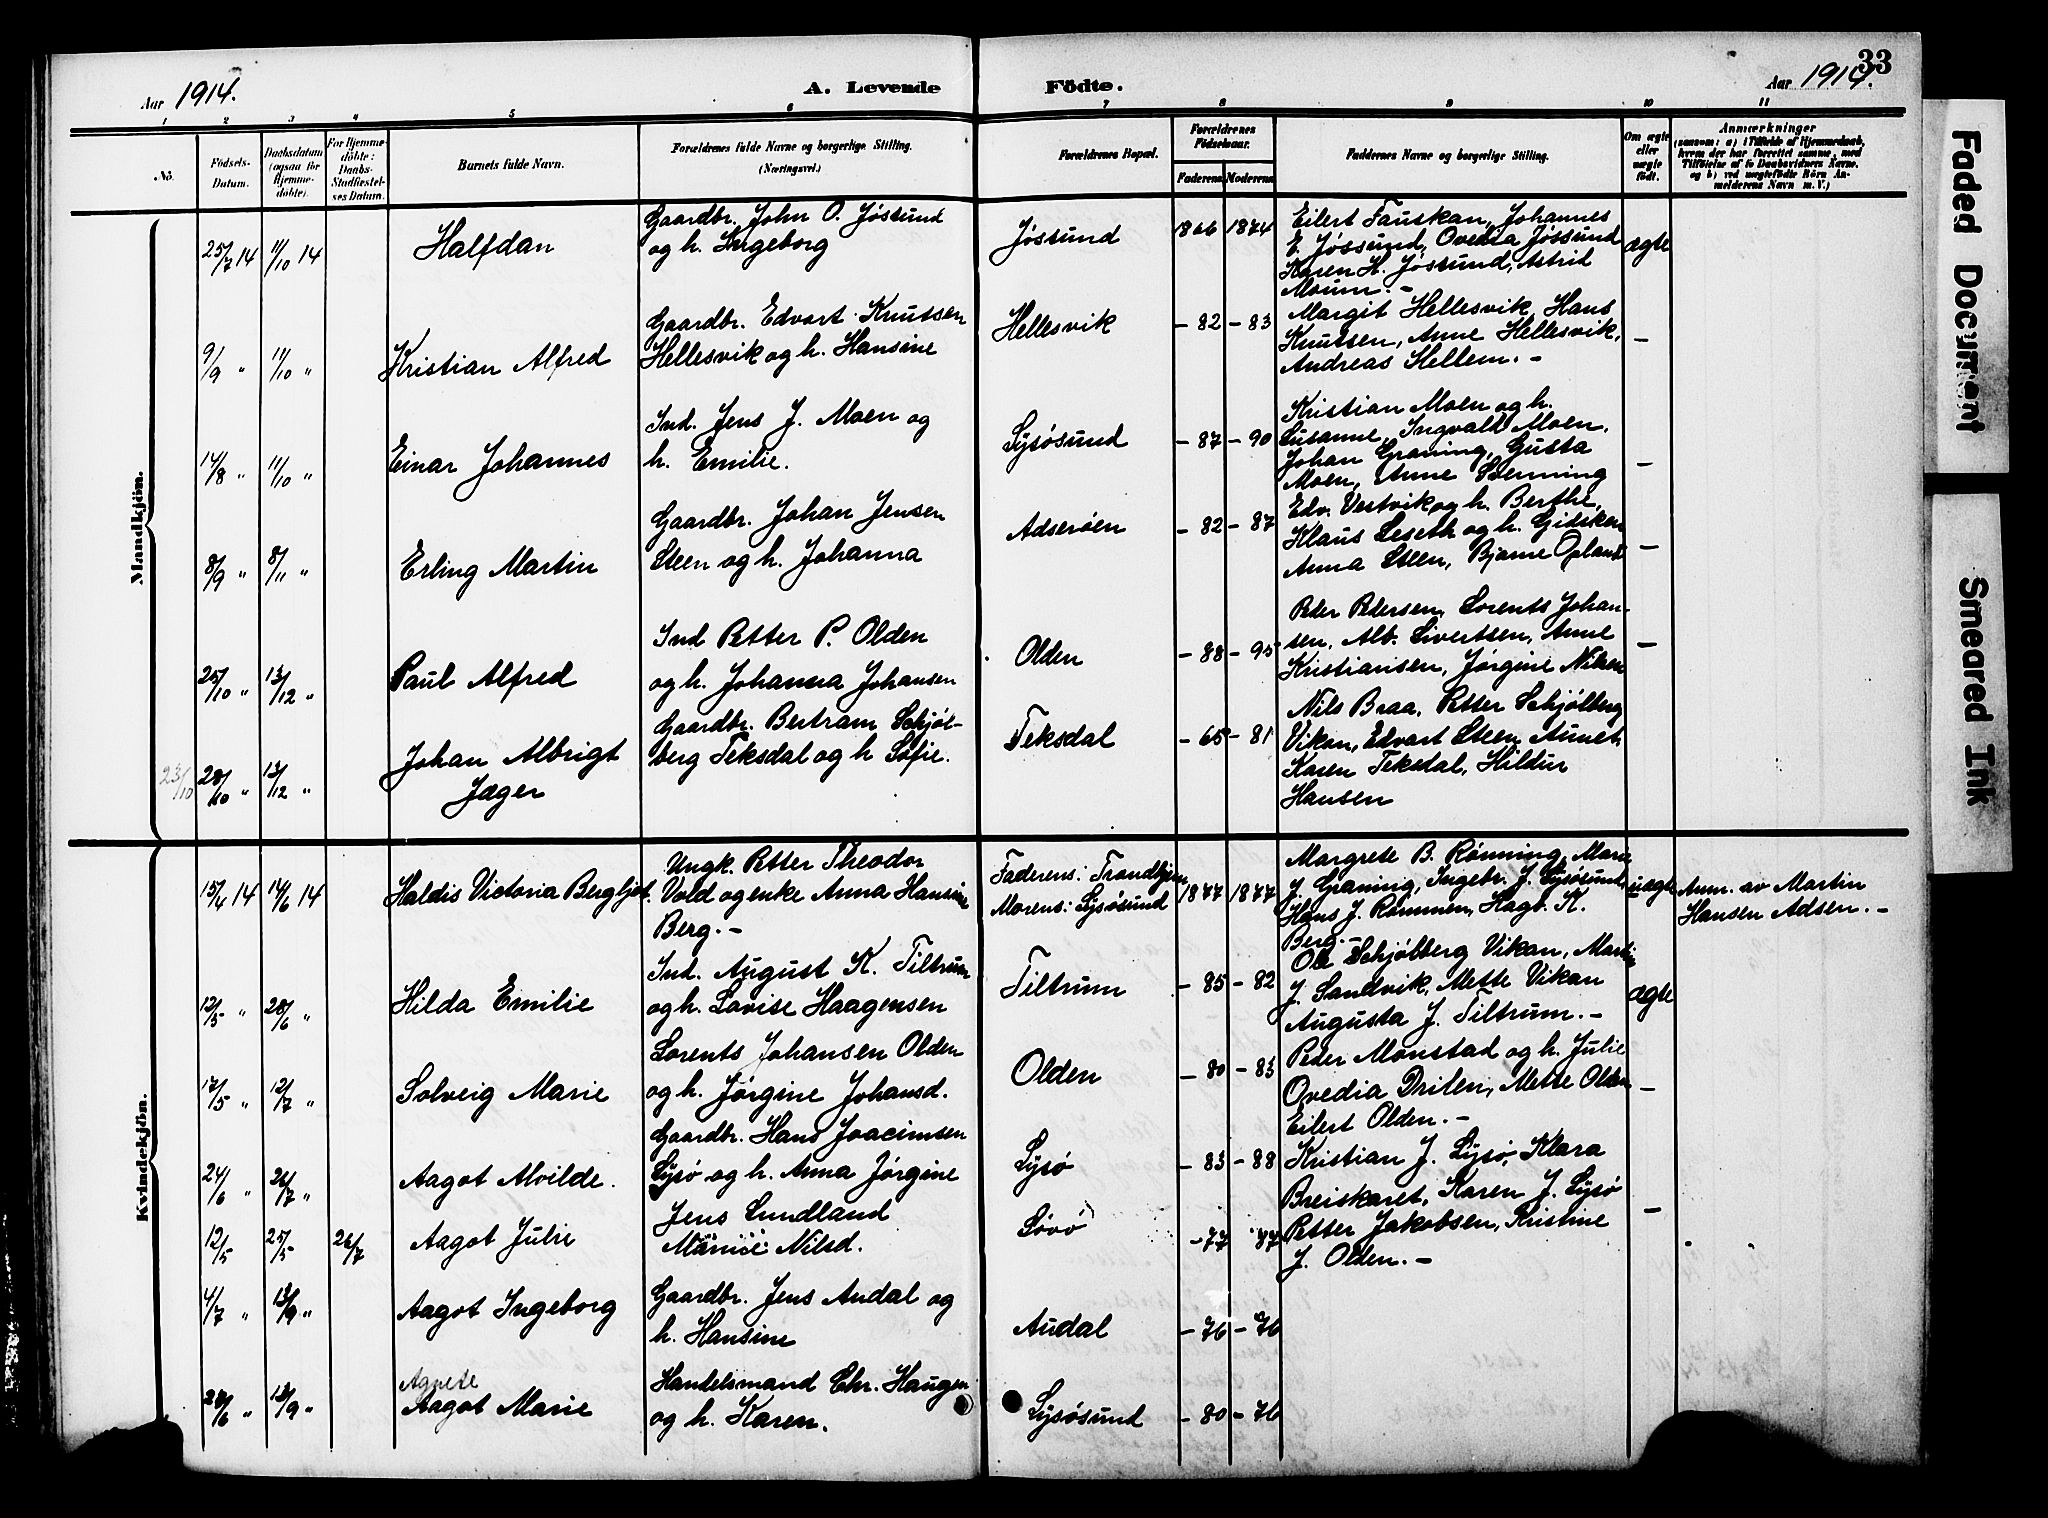 33
Aar 1914.
A. Levende
Födte.
Aar 1914.
1 2 3 4 5 6 7 8 9 10 11
No.
Födsels-
Datum.
Daabsdatum
(ogsaa for
Hjemme-
döbte).
For Hjemme-
döbte:
Daabs-
Stadfæstel-
ses Datum.
Barnets fulde Navn.
Forældrenes fulde Navne og borgerlige Stilling.
(Næringsvei.)
Forældrenes Bopæl.
Forældrenes
Födselsaar.
Faderens Moderens
Faddernes Navne og borgerlige Stilling.
Om ægte
eller
uægte
födt.
Anmærkninger
(saasom: a) i Tilfælde af Hjemmedaab,
hvem der har forrettet samme, med
Tilföielse af to Daabsvidners Navne,
og b) ved uægtefödte Börn An-
melderens Navn m. V.)
Mandkjön.
25/7 14 11/10 14
Halfdan
Gaardbr. John O. Jössund
og h. Ingeborg
Jössund
1866 1874
Eilert Fauskan, Johannes
E. Jössund, Ovedia Jössund
Karen H. Jössund, Astrid
Moum. -
ægte
9/9 " 11/10 "
Kristian Alfred
Gaardbr. Edvart Knutsen
Hellesvik og h. Hansine
Hellesvik
- 82 - 83
Margit Hellesvik, Hans
Knutsen, Anne Hellesvik,
Andreas Hellem. -
-
14/8 " 11/10 "
Einar Johannes
Ind. Jens J. Moen og
h. Emilie.
Lysøsund
- 87 - 90
Kristian Moen og h.
Susanne, Ingvald Moen,
Johan Graning, Gusta
Moen, Anne
-
8/9 " 8/11 "
Erling Martin
Gaardbr. Johan Jensen
Steen og h. Johanna
Adserøen
- 82 - 87
Edv. Vestvik og h. Berthe,
Klaus Leseth og h. Gidsken
Anna Steen, Bjarne
-
25/10 " 13/12 "
Paul Alfred
Ind Petter P. Olden
og h. Johanna Johansen
Olden
- 88 - 95
Peder Pedersen, Lorents Johan-
sen, Alb. Sivertsen, Anne
Kristiansen, Jørgine Nilsen
-
23/10 28/10 " 13/12 "
Johan Albrigt
Jæger
Gaardbr. Bertram Schjøl-
berg Teksdal og h Sofie.
Teksdal
- 65 - 81
Nils Braa, Petter Schjølberg
Vikan, Edvart Steen, Aunet
Karen Teksdal, Hildur
Hansen
Kvindekjön.
15/4 14 14/6 14
Haldis Victoria Bergljot.
Ungk. Petter Theodor
Vold og enke Anna Hansine
Berg. -
Faderens: Trondhjem
Morens: Lysøsund
1877 1877
Margrete B. Rønning, Marie
J. Graning, Ingebr. J. Lysøsund,
Hans J. Rømmen, Hagb. K.
Berg. -
uægte
Anm. av Martin
Hansen Adsen. -
12/5 " 28/6 "
Hilda Emilie
Ind. August K. Tiltrum
og h. Lovise Haagensen
Tiltrum
- 85 - 82
Ole Schjølberg Vikan, Martin
J. Sandvik, Mette Vikan
Augusta J. Tiltrum. -
ægte
17/5 " 12/7 "
Solveig Marie
Lorents Johansen Olden
og h. Jørgine Johansd.
Olden
- 80 - 83
Peder Monstad og h. Julie
Ovedia Drilen, Mette Olden
Eilert Olden. -
-
24/6 " 26/7 "
Aagot Alvilde.
Gaardbr. Hans Joacimsen
Lysø og h. Anna Jørgine
Lysø
- 83 - 88
Kristian J. Lysø, Klara
Breiskaret, Karen J. Lysø
-
12/5 25/5 26/7
Aagot Julie
Jens Sundland
Nilsd.
- 77 87
Petter Jakobsen, Kristine
J. Olden. -
4/7 " 13/9 "
Aagot Ingeborg
Gaardbr. Jens Audal og
h. Hansine
Audal
- 76 - 76
28/6 " 13/9 "
Agnete
Aagot Marie
Handelsmand Chr. Haugen
og h. Karen.
Lysøsund
- 80 - 76
Faded Document
Smeared Ink